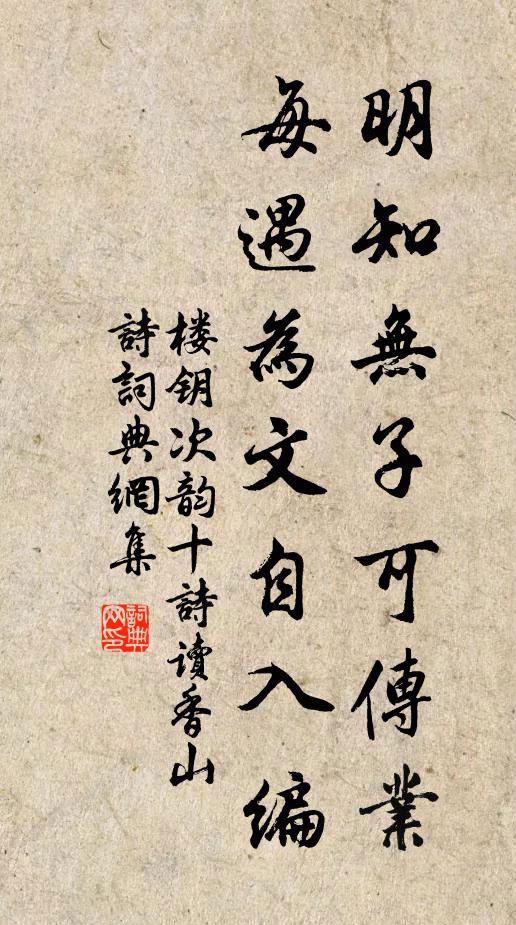 明知無子可傳業
每遇為文自入編
楼钥次韵十詩讀香山
詩詞典網集
詞典網印